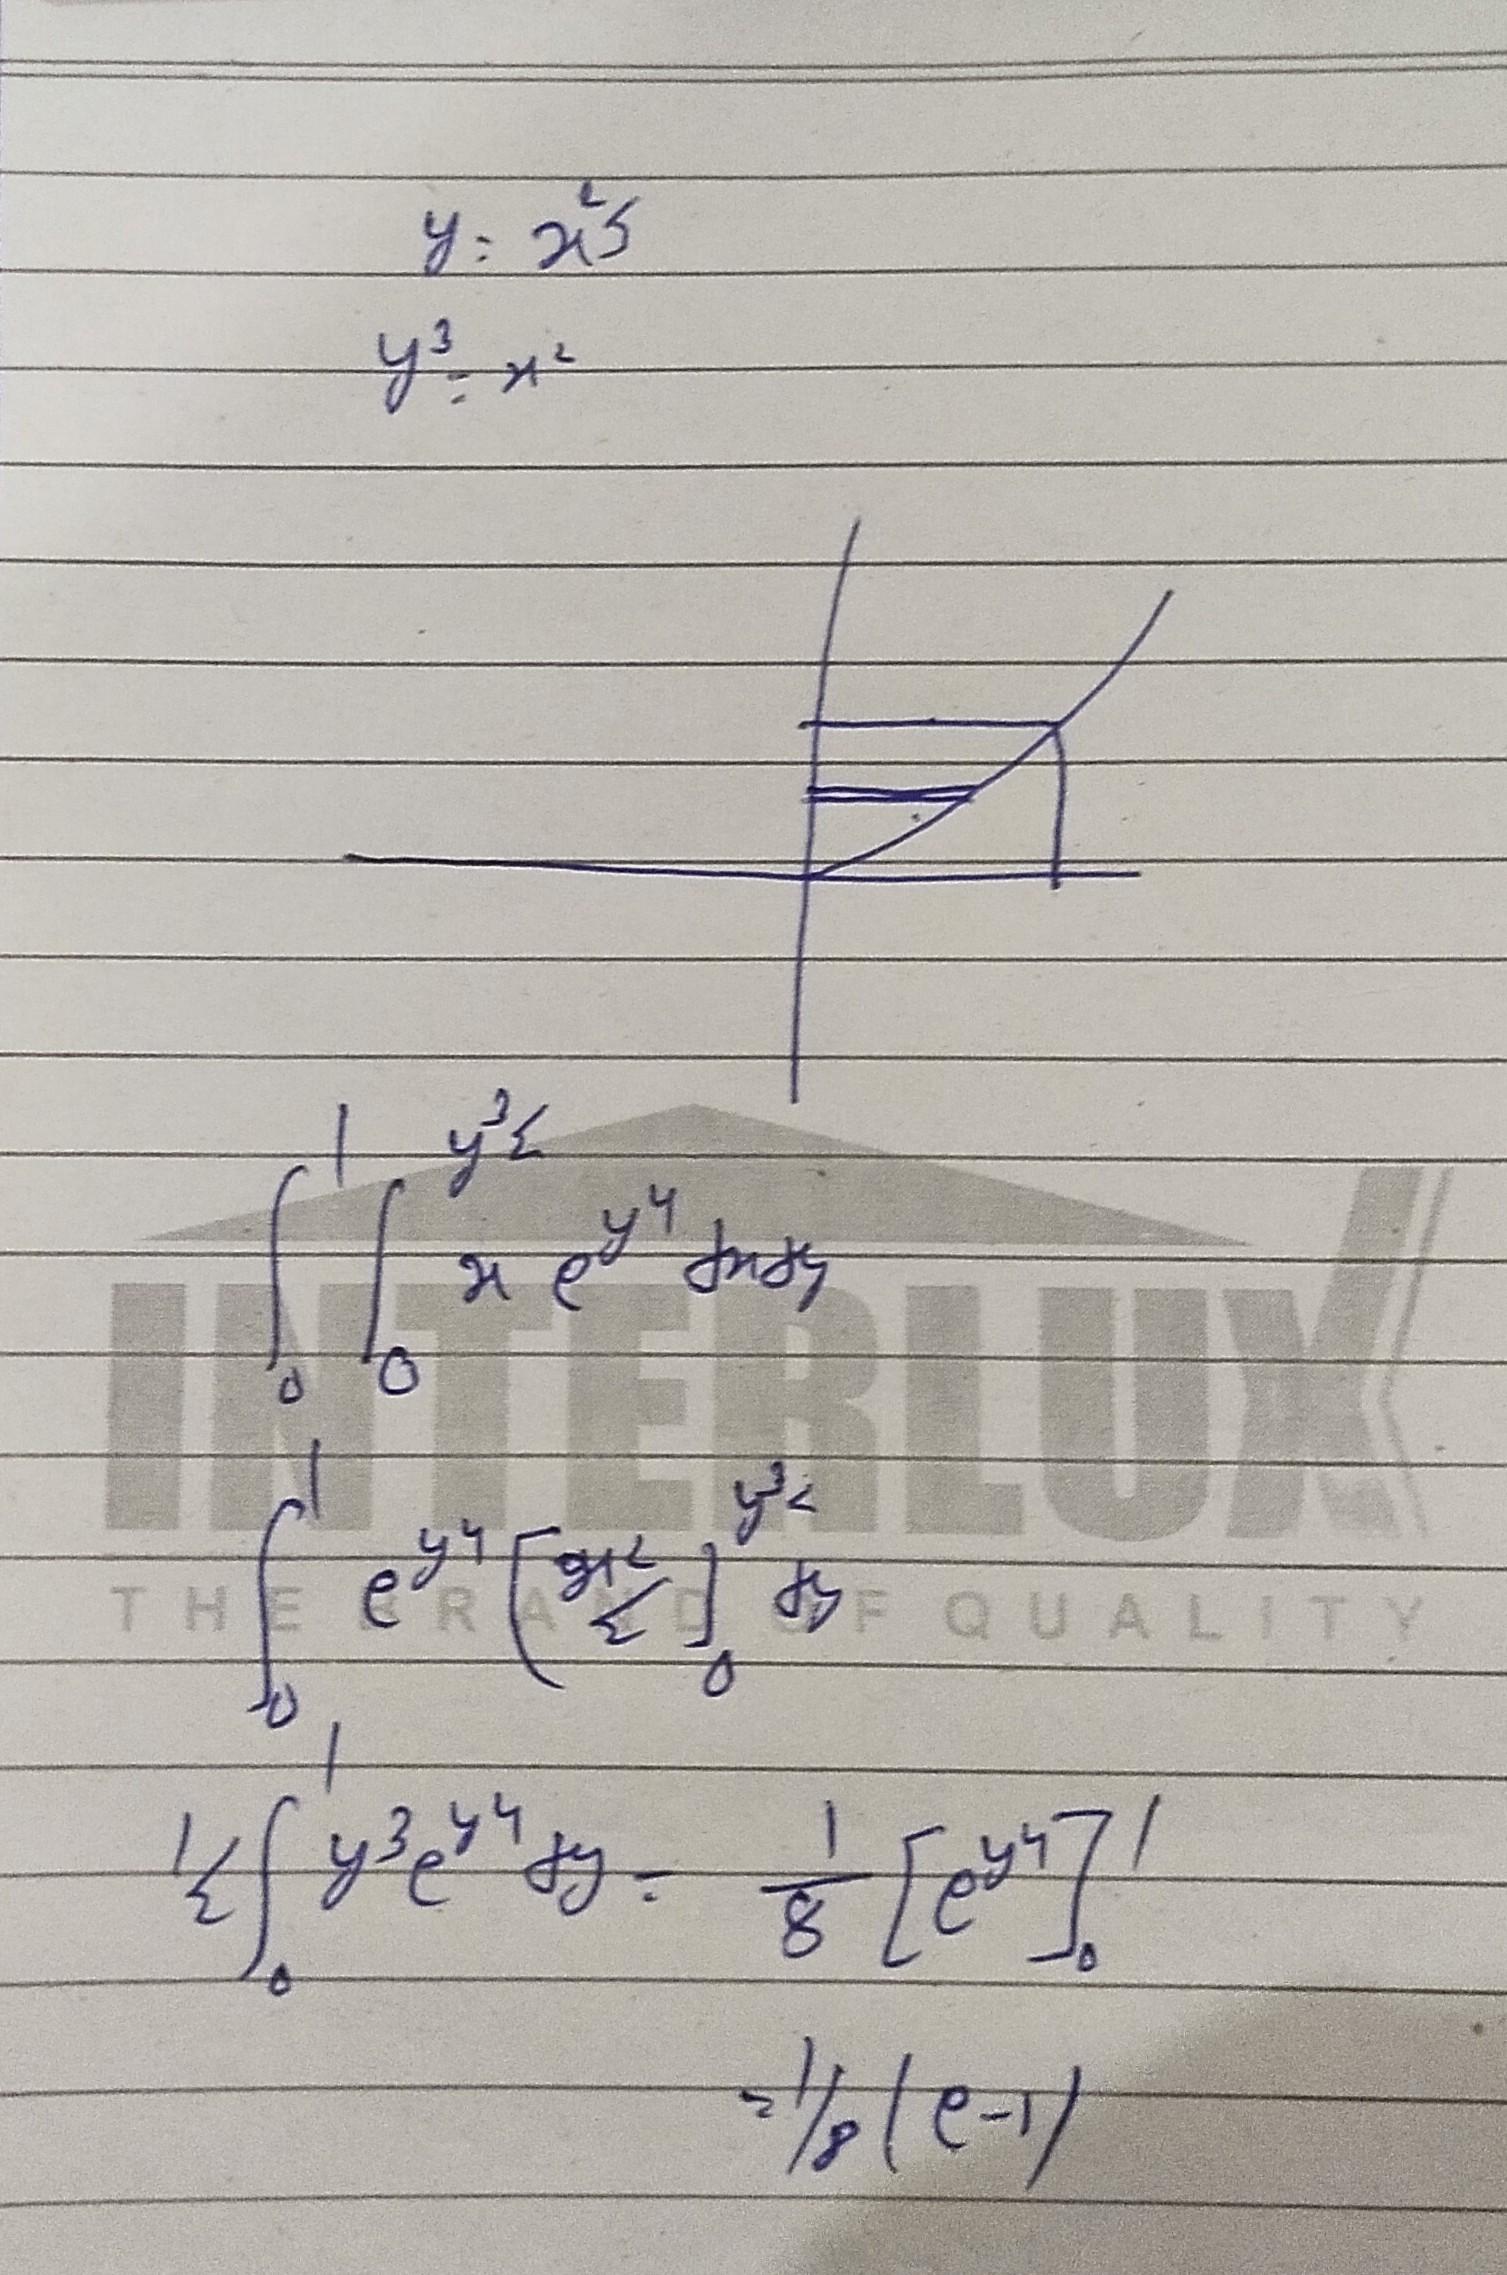 y = x^{2/3}
y^3 = x^2
\int_0^1 \int_0^{y^{3/2}} x e^{y^4} dx dy
\int_0^1 e^{y^4} [x^2/2]_0^{y^{3/2}} dy
1/2 \int_0^1 y^3 e^{y^4} dy = 1/8 [e^{y^4}]_0^1
= 1/8 (e-1)
INTERLUX
THE BRAND OF QUALITY